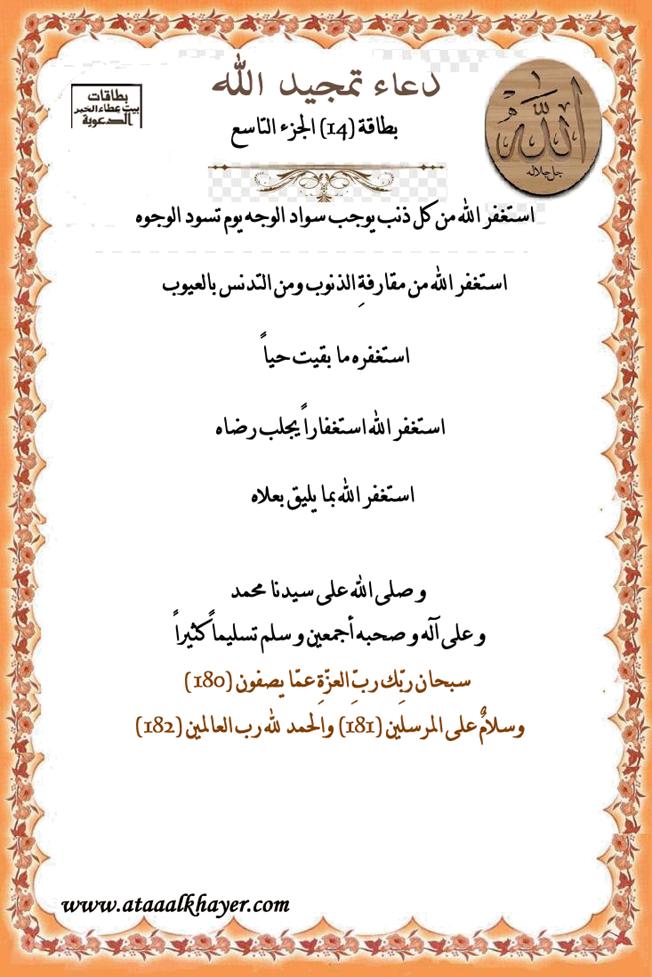 دعاء تمجيد الله
بطاقات
بيت عطاء الخير
الدعوية
بطاقة (14) الجزء التاسع
الله
جل جلاله
استغفر الله من كل ذنب يوجب سواد الوجه يوم تسود الوجوه
استغفر الله من مقارفةِ الذنوب ومن التدنس بالعيوب
استغفره ما بقيت حياً
استغفر الله استغفاراً يجلب رضاه
استغفر الله بما يليق بعلاه
وصلى الله على سيدنا محمد
وعلى آله وصحبه أجمعين وسلم تسليماً كثيراً
سبحان ربِّك ربِّ العزّةِ عمّا يصفون (180)
وسلامٌ على المرسلين (181) والحمد لله رب العالمين (182)
www.ataaalkhayer.com